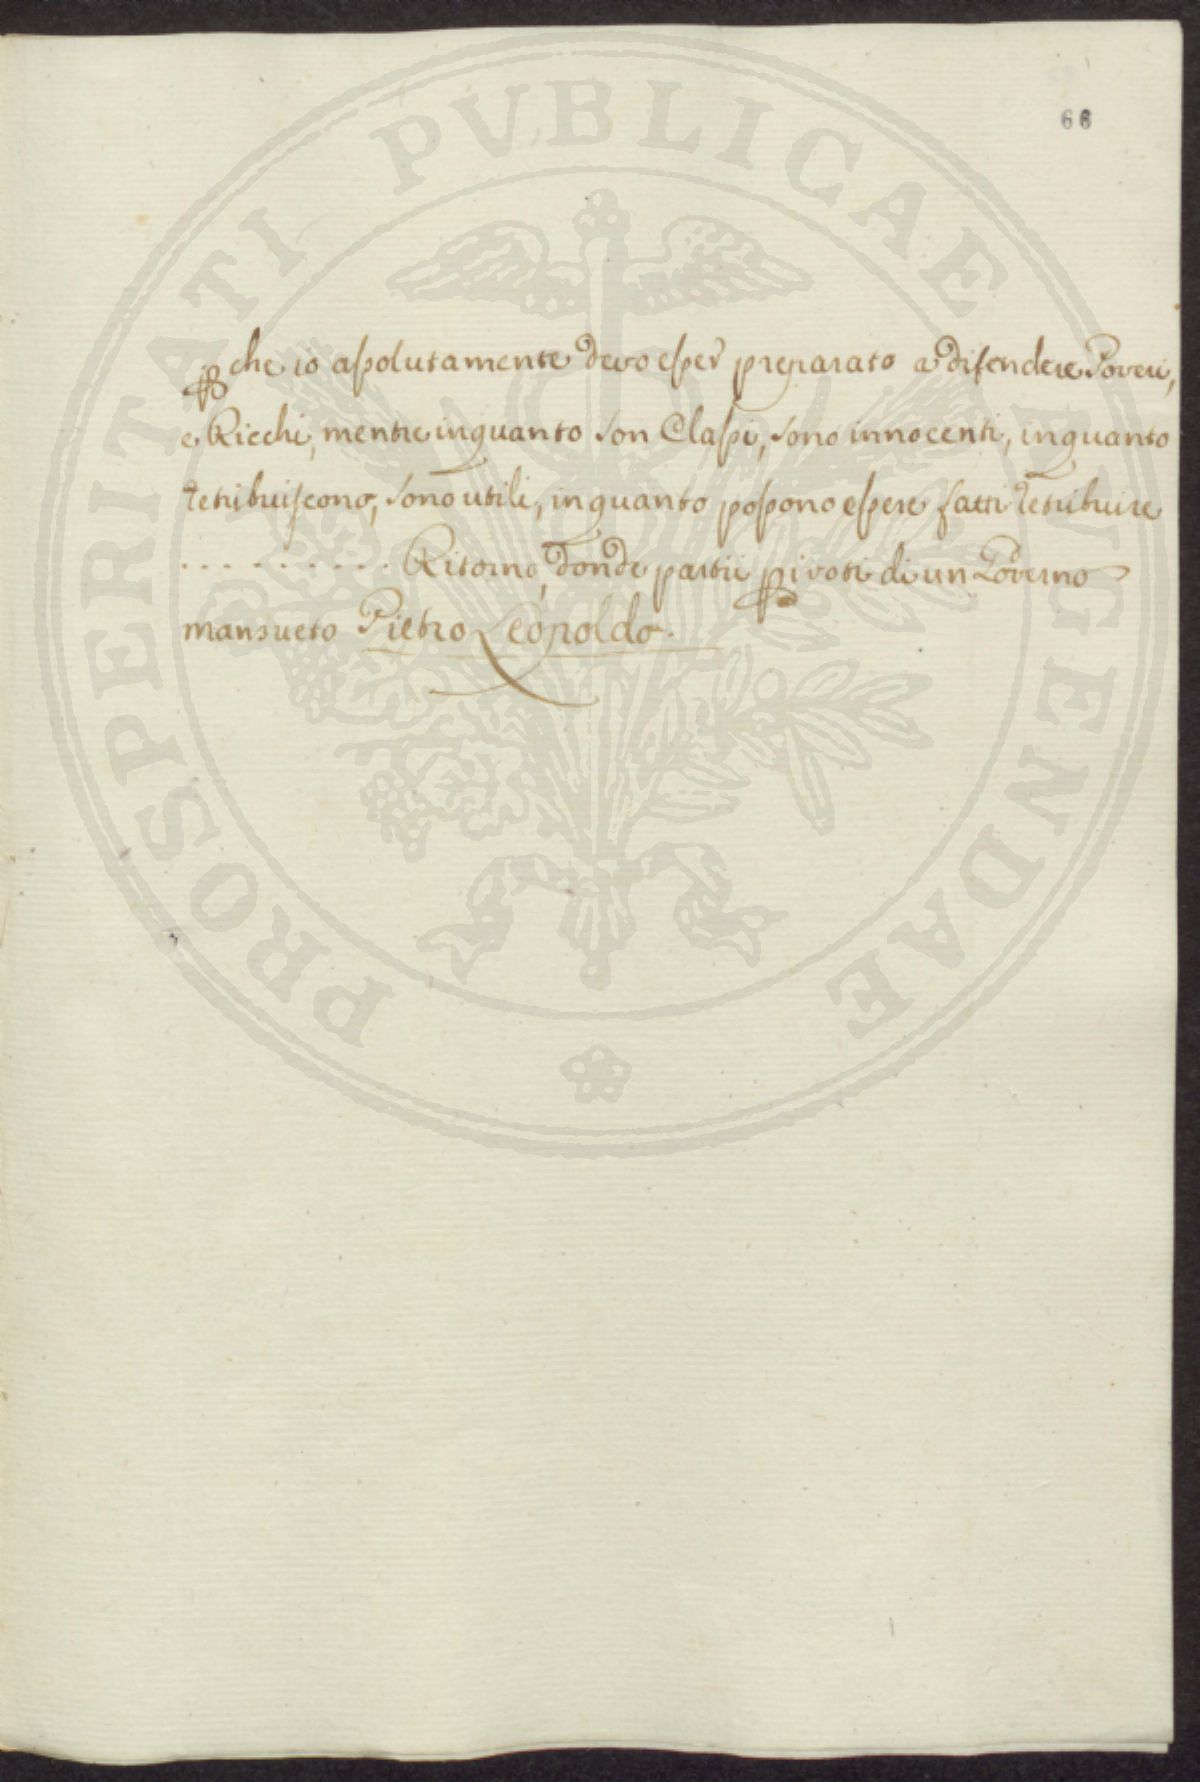 66
PROSPERITATI PVBLICAE AVGENDAE
p che io assolutamente devo esser preparato a difendere Poveri,
e Ricchi, mentre inquanto son Classi, sono innocenti, inquanto
retribuiscono, sono utili, inquanto possono essere fatti retribuire
. . . . . . . . . . Ritorno, donde partii p i voti di un Governo
mansueto Pietro Leopoldo.